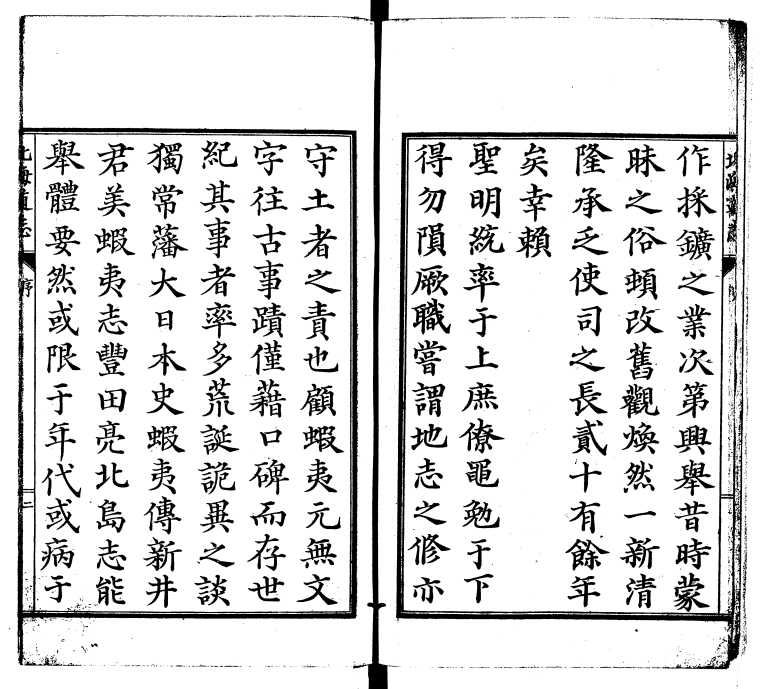 作採鑛之業次第興舉昔時蒙
昧之俗頓改舊觀煥然一新清
隆承乏使司之長貳十有餘年
矣幸賴
聖明統率于上庶僚黽勉于下
得勿隕厥職嘗謂地志之修亦
守土者之責也顧蝦夷元無文
字往古事蹟僅藉口碑而存世
紀其事者率多荒誕詭異之談
獨常藩大日本史蝦夷傳新井
君美蝦夷志豐田亮北島志能
舉體要然或限于年代或病于
北海道志
序
二